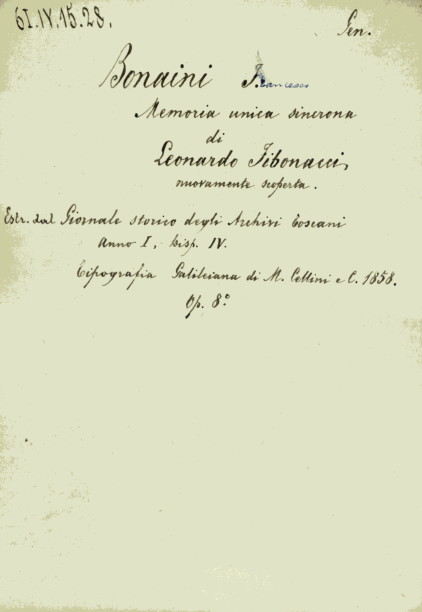 61.IV.15.28.
Gen.
Bonaini Francesco
Memoria unica sincrona
di
Leonardo Fibonacci,
nuovamente scoperta.
Estr. dal Giornale storico degli Archivi toscani
Anno I, Disp. IV.
Tipografia Galileiana di M. Cellini e C. 1858.
Op. 8°